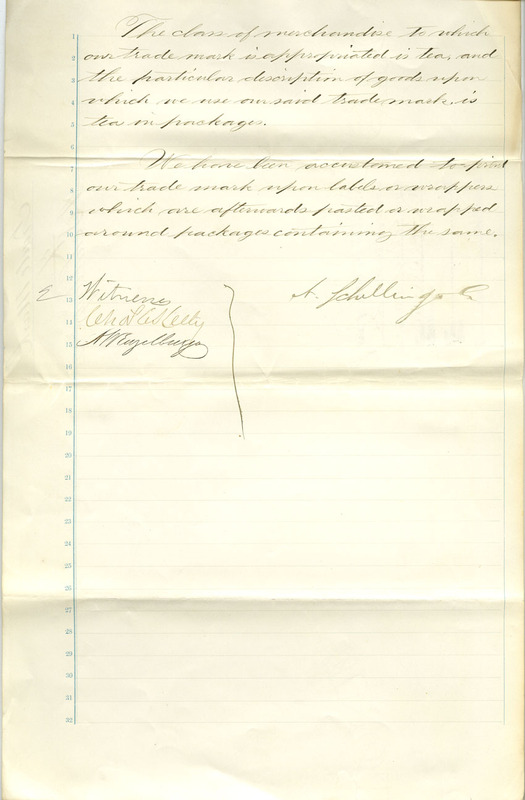 The class of merchandise to which
our trade mark is appropriated is tea, and
the particular description of goods upon
which we use our said trade mark is
tea in packages.
We have been accustomed to print
our trade mark upon labels or wrappers
which are afterwards pasted or wrapped
around packages containing the same.
Witness
A. Schilling & Co
Chas E. Kelly
1
2
3
4
5
6
7
8
9
10
11
12
13
14
15
16
17
18
19
20
21
22
23
24
25
26
27
28
29
30
31
32